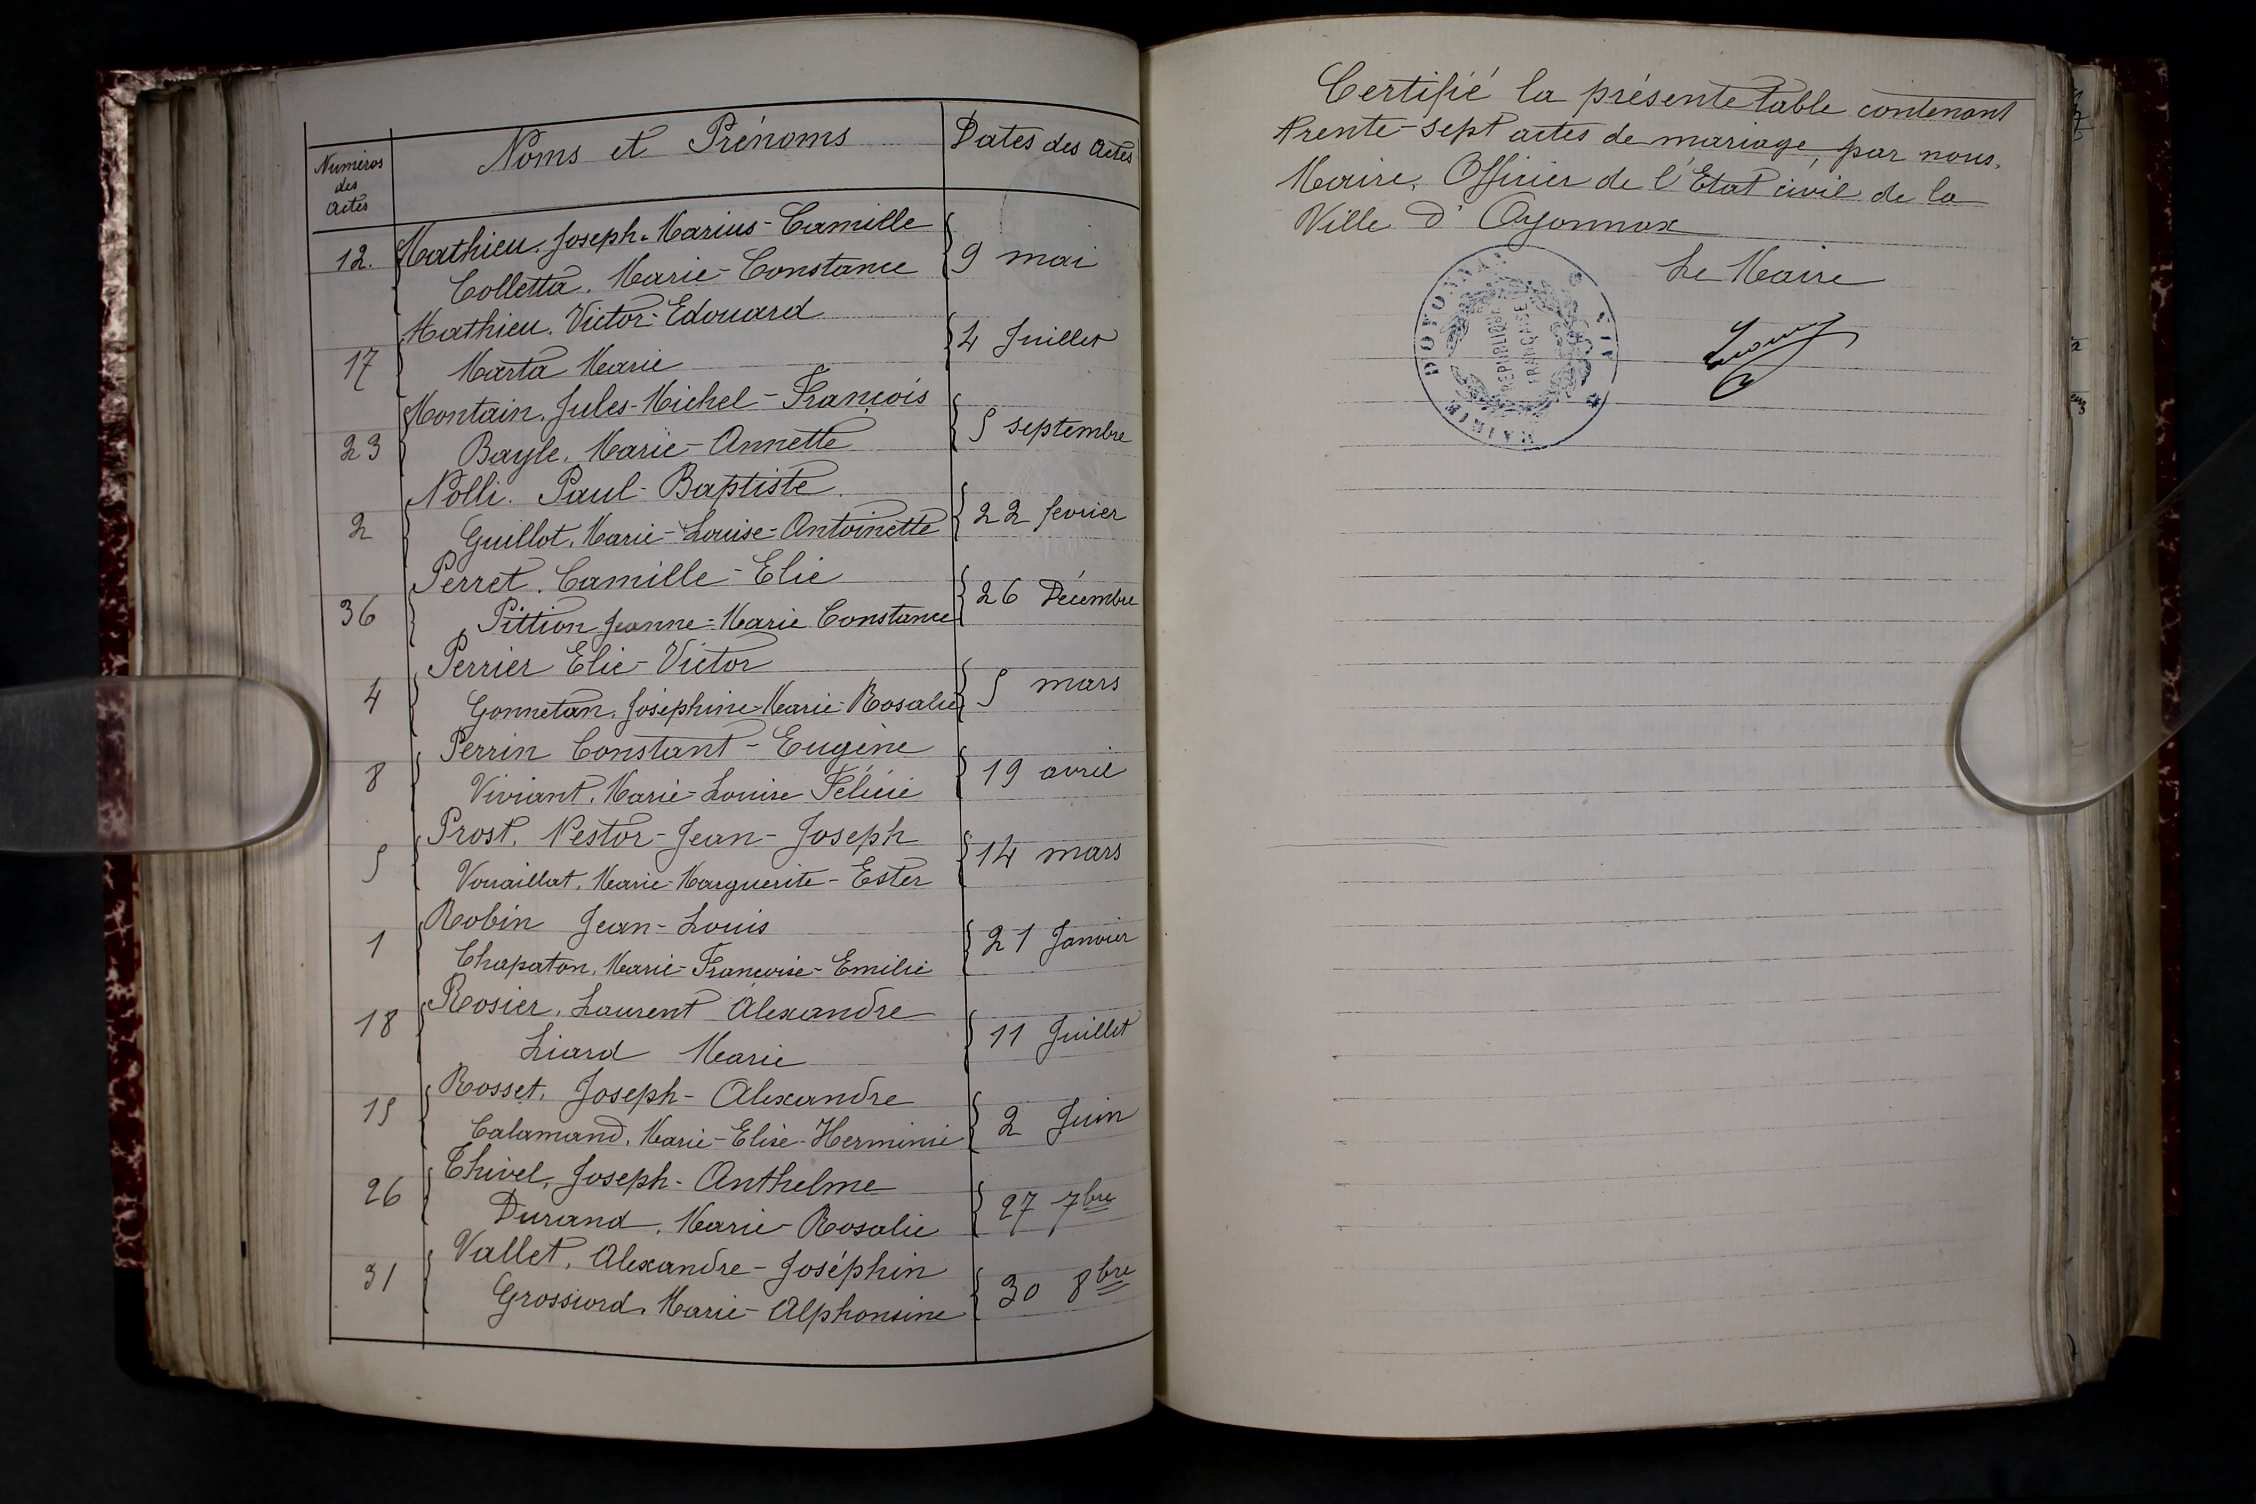 Numéros
des
Actes
Noms et Prénoms
Dates des Actes
12. Mathieu. Joseph-Marius-Camille
Colletta. Marie-Constance
9 mai
Mathieu. Victor-Edouard
17 Marta Marie
4 Juillet
Montain. Jules-Michel-François
23 Bayle. Marie-Annette
5 septembre
Nolli. Paul-Baptiste
2 Guillot. Marie-Louise-Antoinette
22 février
Perret. Camille-Elie
36 Pittion Jeanne-Marie Constance
26 Décembre
Perrier Elie-Victor
4 Gonnetan. Joséphine-Marie-Rosalie
5 mars
Perrin Constant-Eugène
8 Viviant. Marie-Louise Félicie
19 avril
Prost. Nestor-Jean-Joseph
5 Vouaillat. Marie-Marguerite-Ester
14 mars
Robin Jean-Louis
1 Chapaton. Marie-Françoise-Emilie
21 Janvier
Rosier. Laurent Alexandre
18 Liard Marie
11 Juillet
Rosset. Joseph-Alexandre
15 Calamand. Marie-Elise-Herminie
2 Juin
Thivel, Joseph-Anthelme
26 Durand. Marie-Rosalie
27 7bre
Vallet. Alexandre-Joséphin
31 Grossiord. Marie-Alphonsine
30 8bre
Certifié la présente table contenant
trente-sept actes de mariage, par nous,
Maire, Officier de l'Etat civil de la
Ville d'Oyonnax
Le Maire
MAIRIE D'OYONNAX
RÉPUBLIQUE
FRANÇAISE